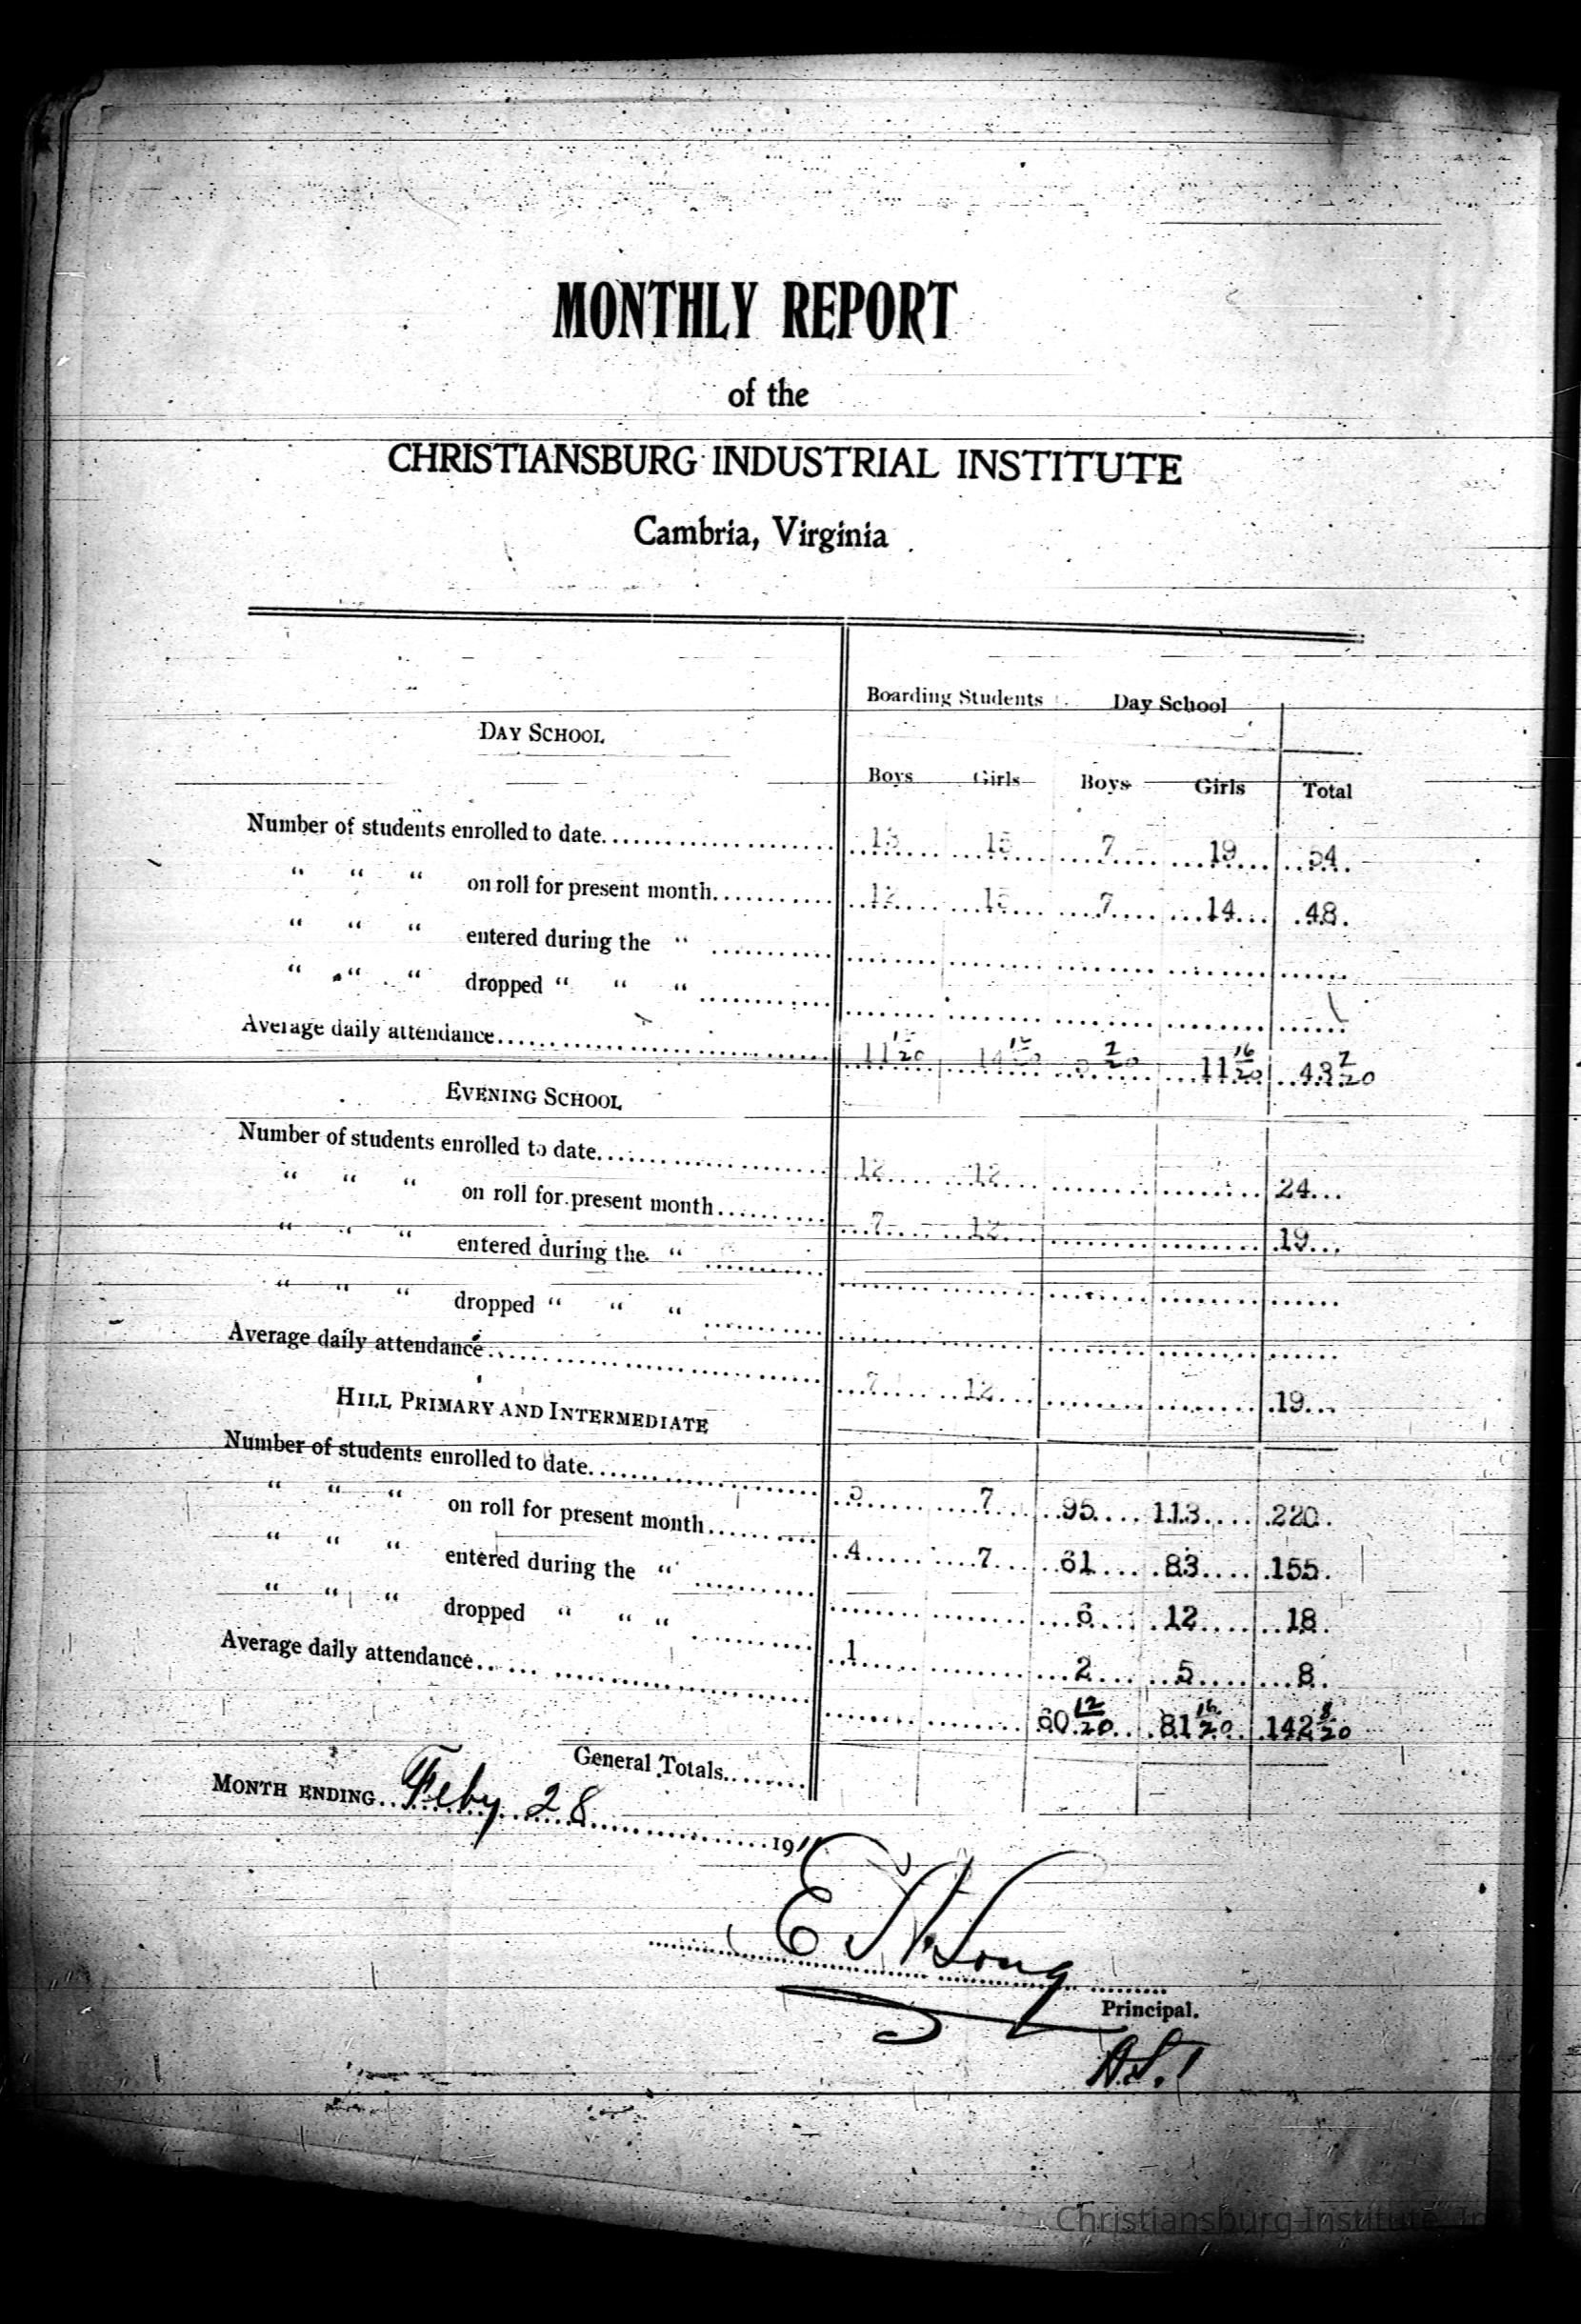 MONTHLY REPORT
of the
CHRISTIANSBURG INDUSTRIAL INSTITUTE
Cambria, Virginia
Boarding Students Day School
DAY SCHOOL
Boys Girls Boys Girls Total
Number of students enrolled to date 13 15 7 19 54
" " " on roll for present month 12 15 7 14 48
" " " entered during the "
" " " dropped " " "
Average daily attendance 11 20 20 11 16/20 43 7/20
EVENING SCHOOL
Number of students enrolled to date 12 12 24
" " " on roll for present month 7 12 19
" " " entered during the "
" " " dropped " " "
Average daily attendance 7 12 19
HILL PRIMARY AND INTERMEDIATE
Number of students enrolled to date 5 7 95 113 220
" " " on roll for present month 4 7 61 83 155
" " " entered during the " 6 12 18
" " " dropped " " " 1 2 5 8
Average daily attendance 60 12/20 81 16/20 142 8/20
General Totals
MONTH ENDING Feby 28 1911
E A Long
Principal.
A.L.!
Christiansburg Institute, In